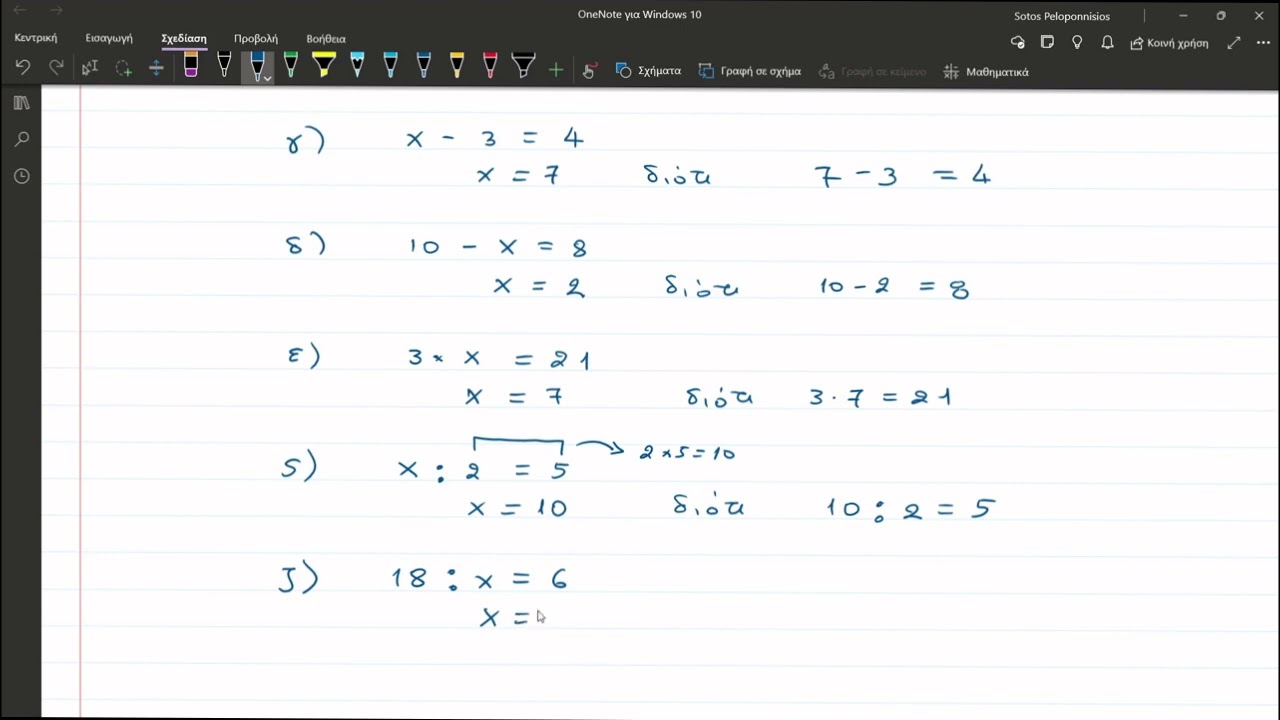 OneNote για Windows 10
Sotos Peloponnisios
Κεντρική Εισαγωγή Σχεδίαση Προβολή Βοήθεια
Κοινή χρήση
Σχήματα Γραφή σε σχήμα Γραφή σε κείμενο Μαθηματικά
γ) x - 3 = 4
x = 7 διότι 7 - 3 = 4
δ) 10 - x = 8
x = 2 διότι 10 - 2 = 8
ε) 3 × x = 21
x = 7 διότι 3 · 7 = 21
2 × 5 = 10
ς) x : 2 = 5
x = 10 διότι 10 : 2 = 5
ζ) 18 : x = 6
x =